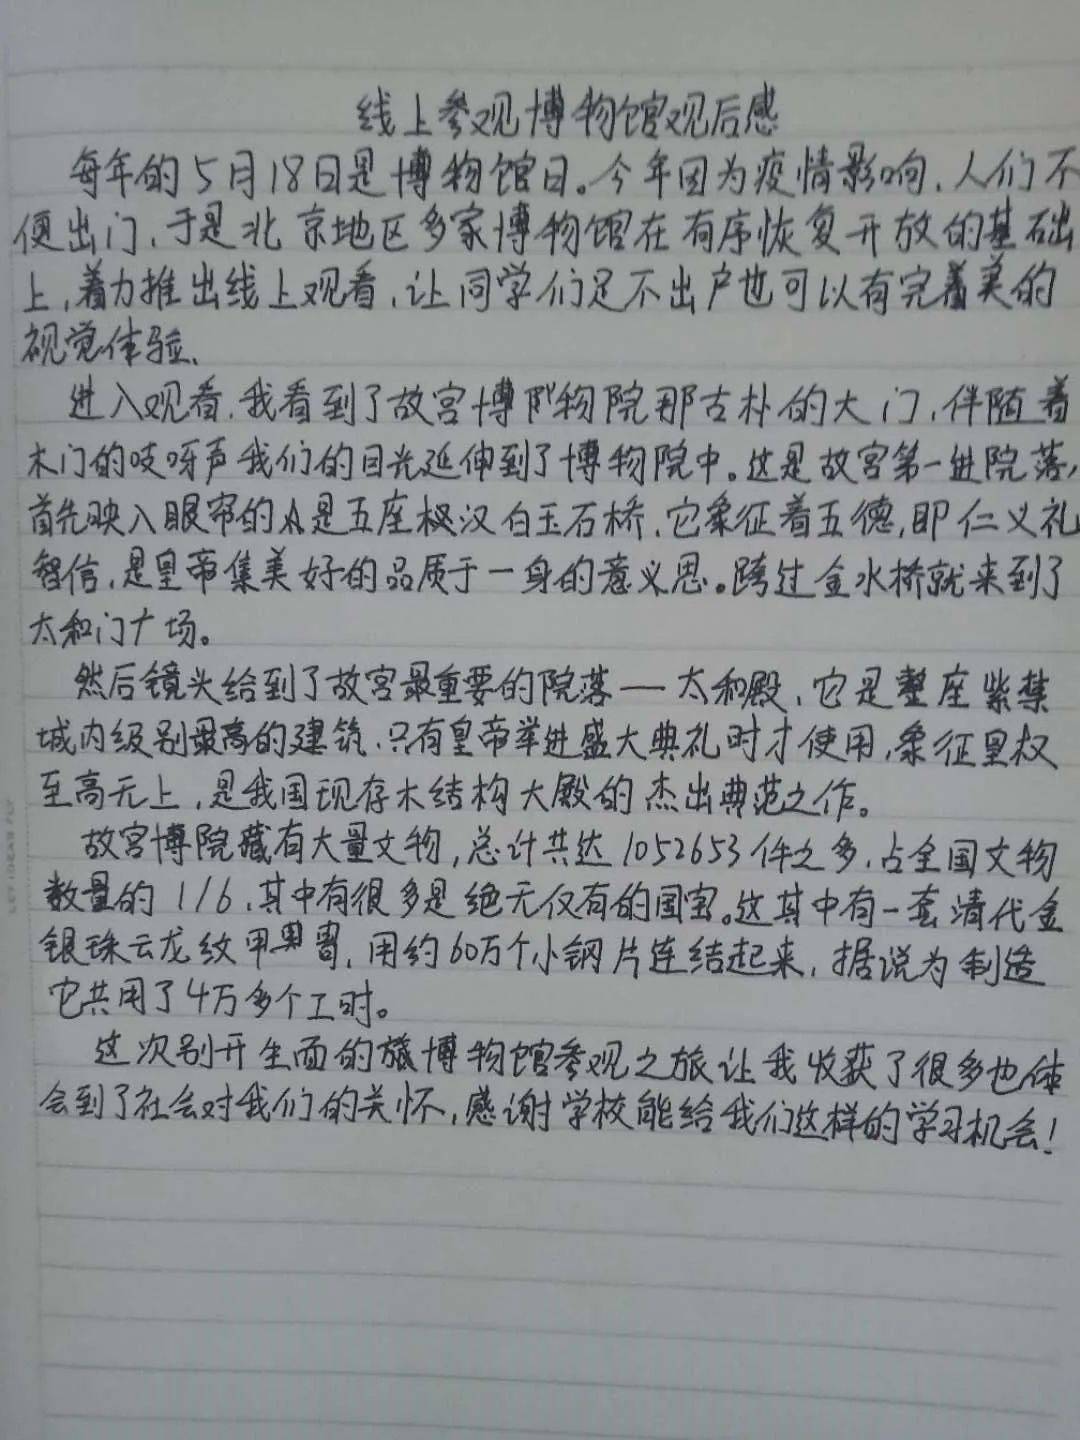 线上参观博物馆观后感
每年的5月18日是博物馆日。今年因为疫情影响,人们不
便出门,于是北京地区多家博物馆在有序恢复开放的基础
上,着力推出线上观看,让同学们足不出户也可以有完美的
视觉体验.
进入观看,我看到了故宫博物院那古朴的大门,伴随着
木门的吱呀声我们的目光延伸到了博物院中。这是故宫第一进院落,
首先映入眼帘的是五座汉白玉石桥,它象征着五德,即仁义礼
智信,是皇帝集美好的品质于一身的意义思。跨过金水桥就来到了
太和门广场。
然后镜头给到了故宫最重要的院落——太和殿,它是整座紫禁
城内级别最高的建筑,只有皇帝举进盛大典礼时才使用,象征皇权
至高无上,是我国现存木结构大殿的杰出典范之作。
故宫博院藏有大量文物,总计共达1052653件之多,占全国文物
数量的1/6,其中有很多是绝无仅有的国宝。这其中有一套清代金
银珠云龙纹甲胄,用约60万个小钢片连结起来,据说为制造
它共用了4万多个工时。
这次别开生面的博物馆参观之旅让我收获了很多也体
会到了社会对我们的关怀,感谢学校能给我们这样的学习机会!